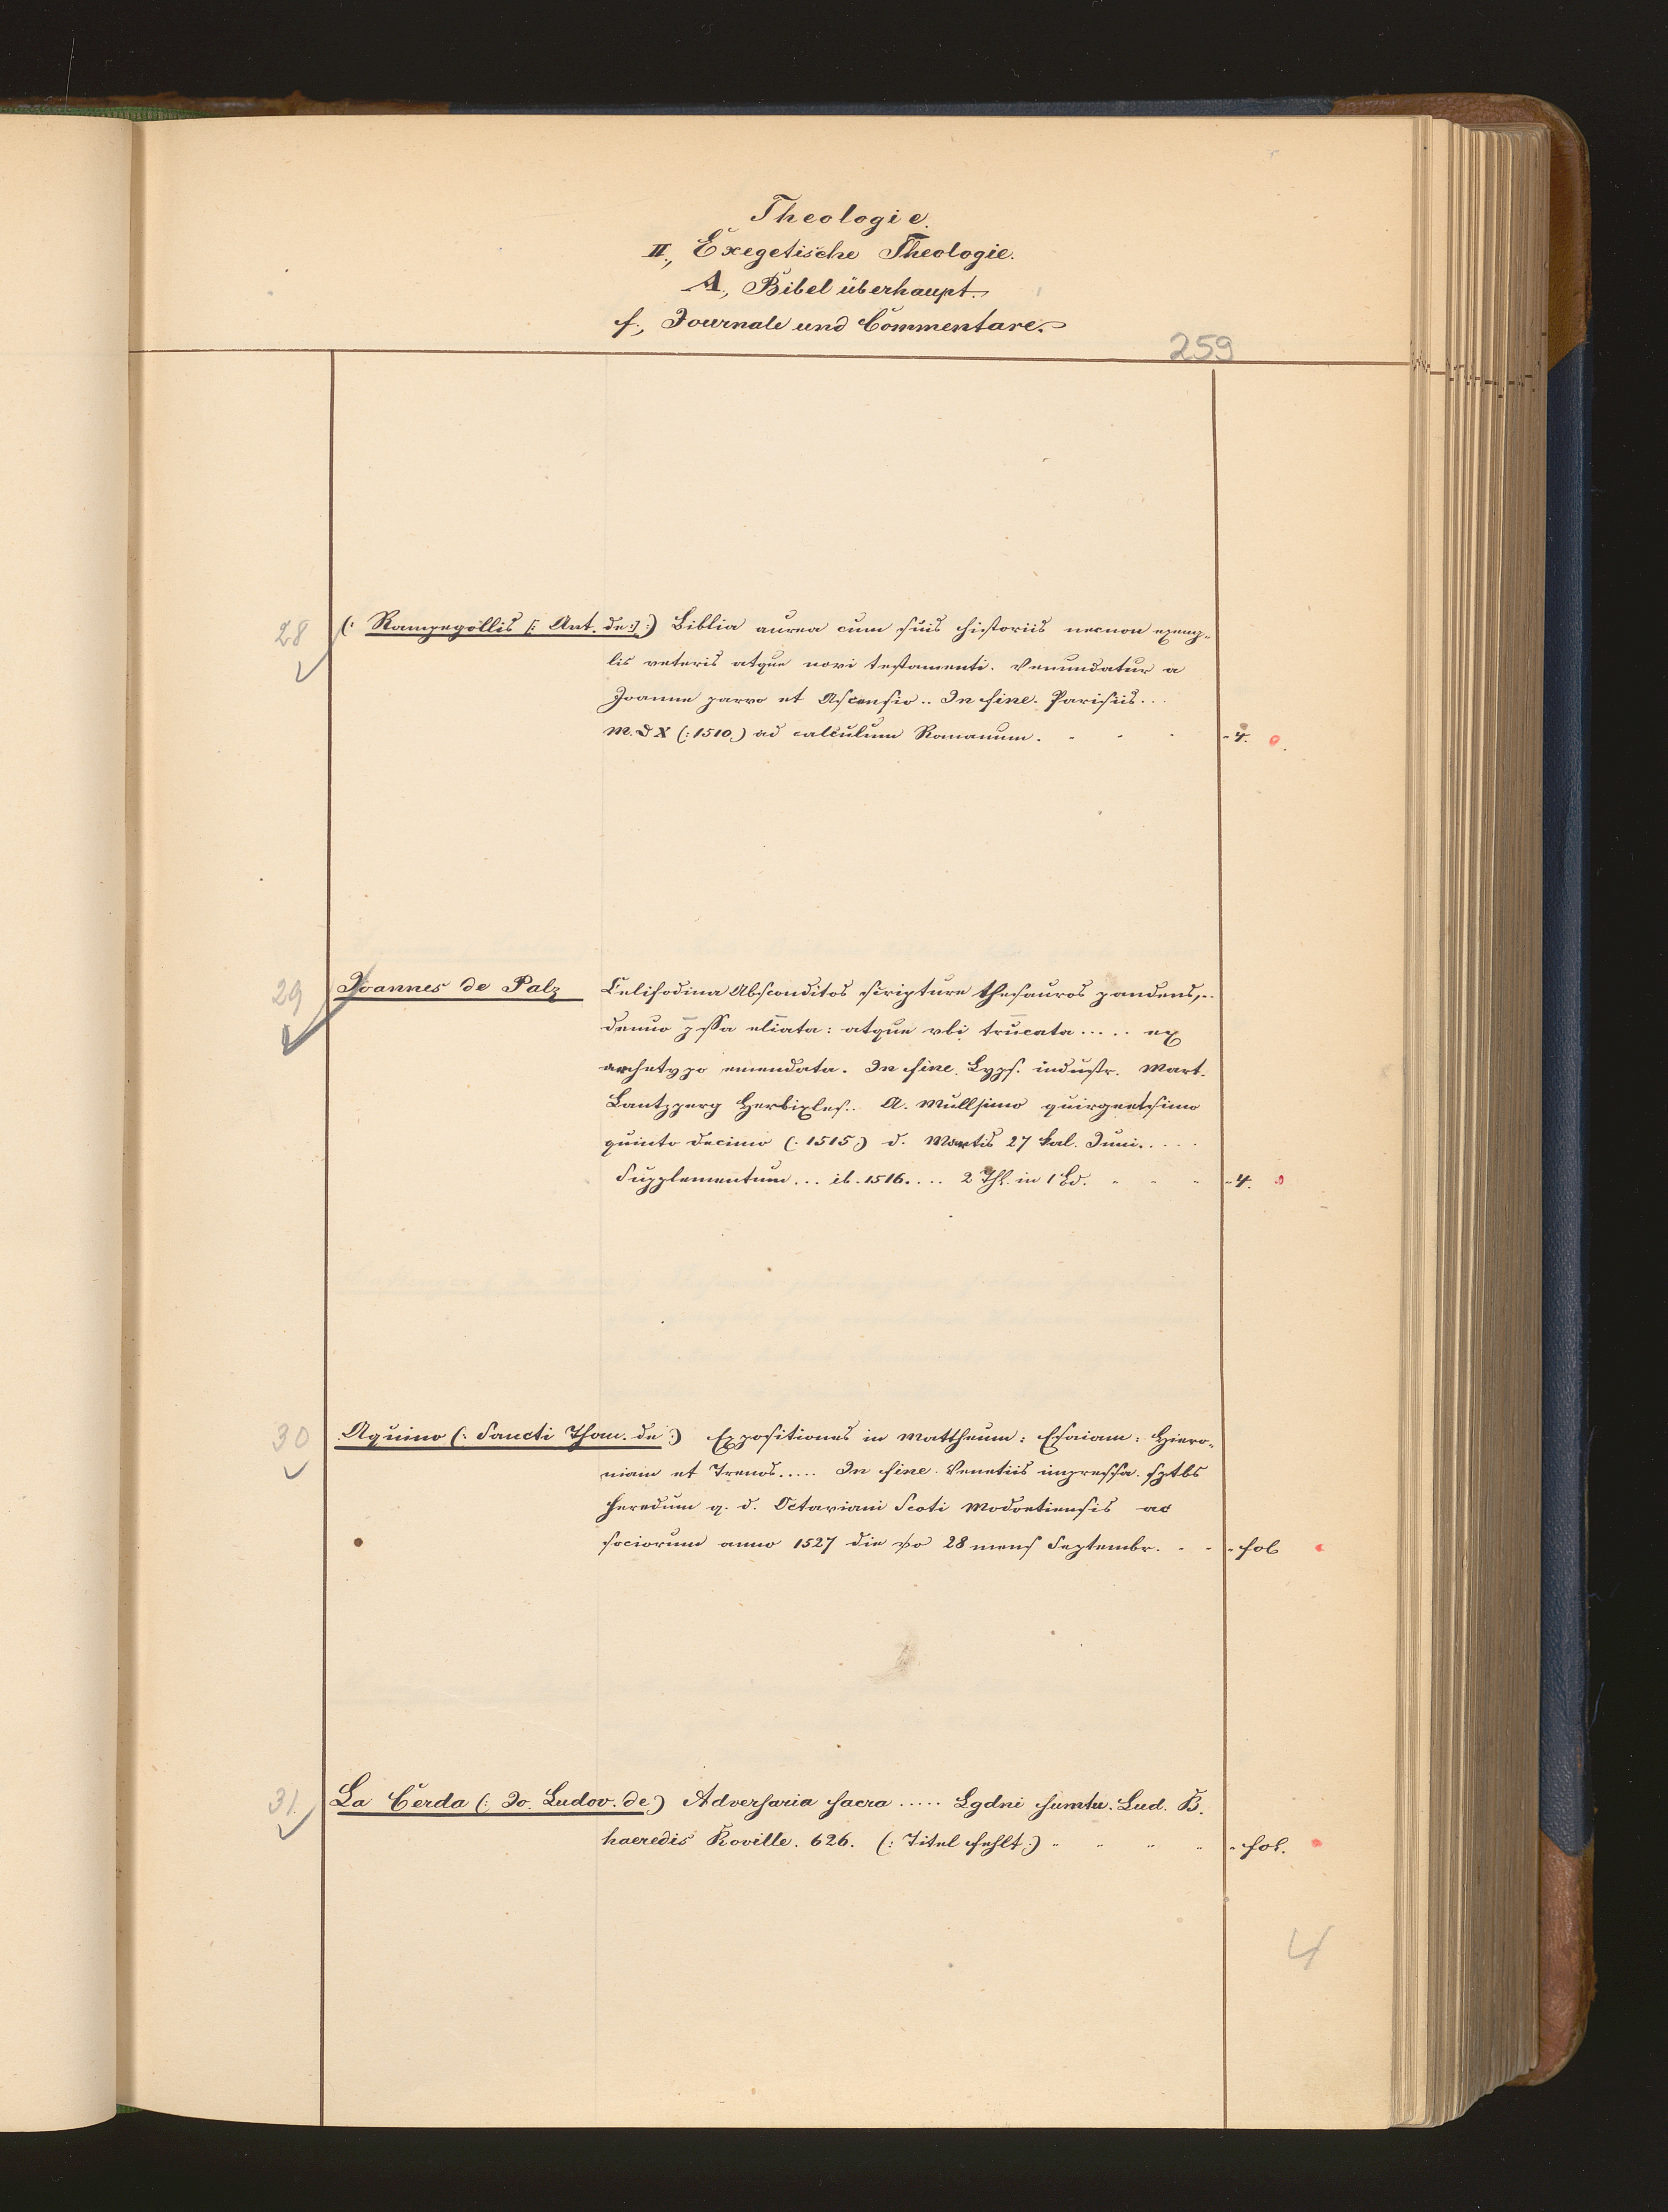 Theologie.
II., Exegetische Theologie.
A., Bibel überhaupt.
f., Journale und Commentare.
259
28 (: Rampegollis [: Ant. de :] :) Biblia aurea cum suis historiis necnon exemp-
lis veteris atque novi testamenti. Venundatur a
Joanne parvo et Ascensio .. In fine. Parisiis ...
M.DX (: 1510.) ad calculum Romanum. - - - " 4.
29 Joannes de Palz Celifodina Absconditos scripture thesauros pandens, ..
denuo p̄ssa elīata: atque vbi trūcata ..... ex
archetypo emendata. In fine. Lyps. industr. Mart.
Lantzperg Herbiples.. A. Mullsimo quigentsimo
quinto decimo (: 1515.) d. Martis 27 kal. Juni. ....
Supplementum ... ib. 1516. ... 2 Thl. in 1 Bd. " " " " 4.
30 Aquino (: Sancti Thom. de :) Expositiones in Mattheum: Esaiam: Hiere-
miam et Trenos ..... In fine. Venetiis impressa. sptbs
heredum q. d. Octaviani Scoti Modoetiensis ac
sociorum anno 1527 die 28 mens Septembr. - - " fol
31. La Cerda (: Jo. Ludov. de) Adversaria sacra ..... Lgdni sumtu. Lud. B.
haeredis Roville. 626. (: Titel fehlt :) " " " " " fol.
4